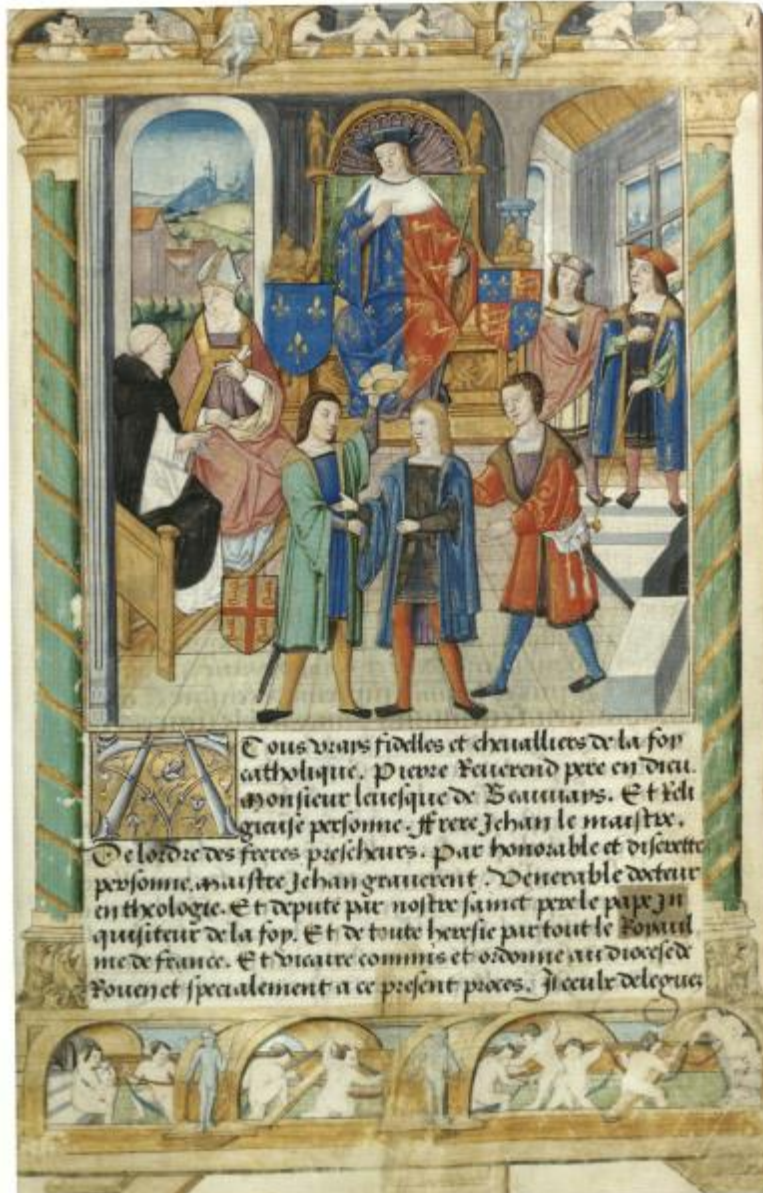 A Tous vrays fidelles et cheualliers de la foy
catholique. Pierre Reuerend pere en dieu.
monsieur leuesque de Beauuays. Et Reli
gieuse personne. ffrere Jehan le maistre.
De lordre des freres prescheurs. Par honorable et discrette
personne. maistre Jehan grauerent. Venerable docteur
en theologie. Et depute par nostre sainct pere le pape In
quisiteur de la foy. Et de toute heresie par tout le Royaul
me de france. Et vicaire commis et ordonne au diocese de
Rouen et specialement a ce present proces. Iceulx deleguez